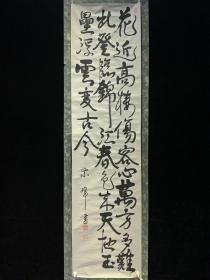 花近高樓傷客心萬方多難
此登臨錦江春色来天地玉
壘浮雲变古今